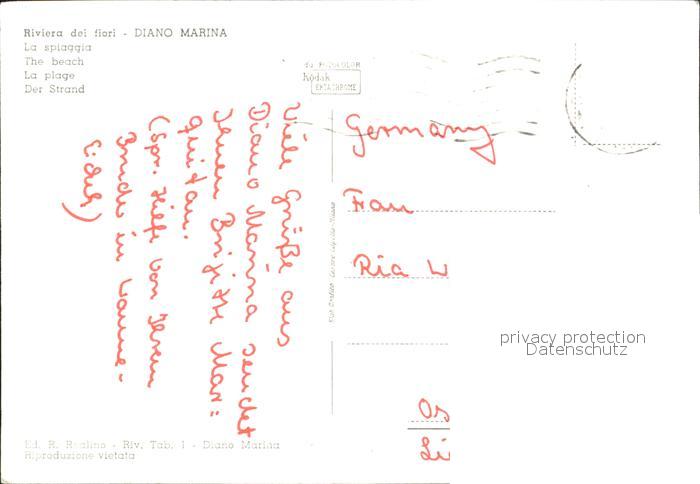 Riviera dei fiori - DIANO MARINA
La spiaggia
The beach
La plage
Der Strand
da FOTOCOLOR
Kodak
EKTACHROME
Viele Grüße aus
Diano Marina sendet
Ihnen Brigitte Mar=
(Spr. Hilfe von Ihrem
Bruder in Wanne-
Eickel)
Germany
Frau
Ria W
Os
Li
privacy protection
Datenschutz
Ed. R. Realino - Riv. Tab. 1 - Diano Marina
Riproduzione vietata